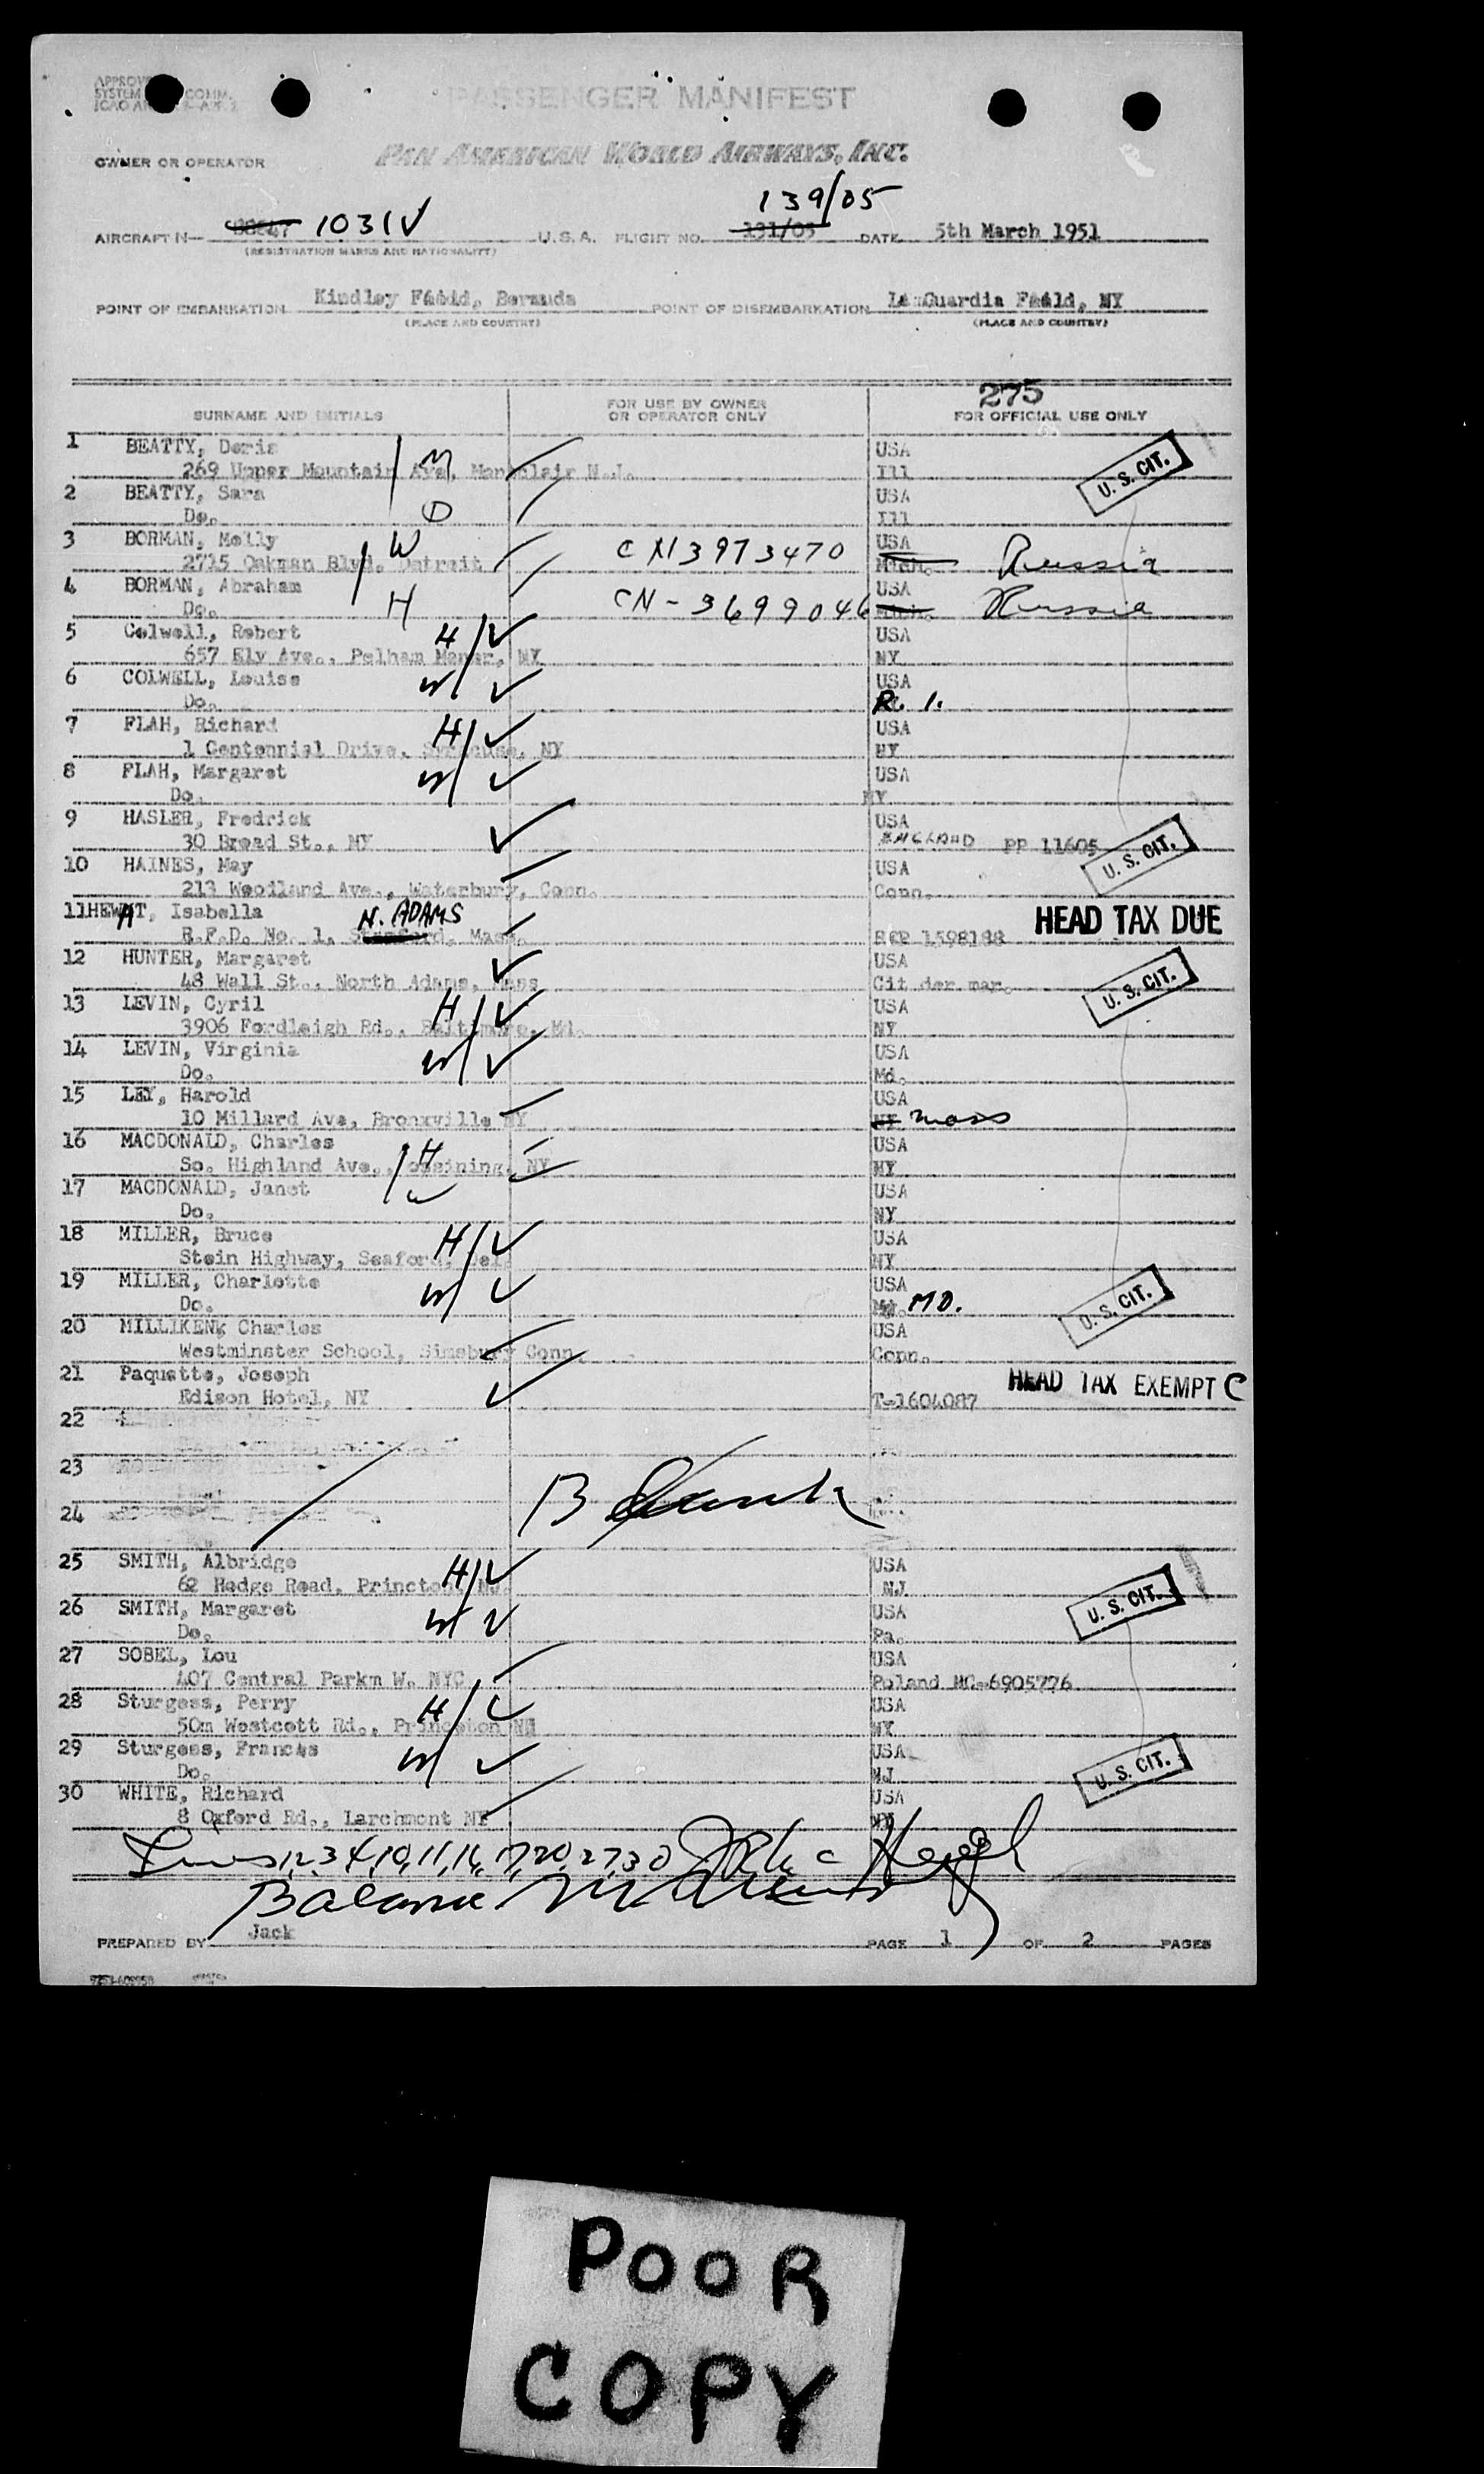 PASSENGER MANIFEST
OWNER OR OPERATOR PAN AMERICAN WORLD AIRWAYS, INC.
139/05
AIRCRAFT N— 1031V U.S.A. FLIGHT NO. 131/05 DATE 5th March 1951
(REGISTRATION MARKS AND NATIONALITY)
POINT OF EMBARKATION Kindley Bermuda POINT OF DISEMBARKATION NY
(PLACE AND COUNTRY) (PLACE AND COUNTRY)
275
SURNAME AND INITIALS FOR USE BY OWNER OR OPERATOR ONLY FOR OFFICIAL USE ONLY
1 BEATTY, Doris M USA
269 Upper Mountain Ave, Montclair N.J. Ill U.S. CIT.
2 BEATTY, Sara USA
Do. D Ill
3 BORMAN, Molly W CN 3973470 USA
2715 Oakman Blvd. Detroit Mich. Russia
4 BORMAN, Abraham USA
Do. H CN-3699046 Mich. Russia
5 Colwell, Robert H USA
657 Ely Ave., Pelham Manor, NY NY
6 COLWELL, Louise W USA
Do. R. I.
7 FLAH, Richard H USA
1 Centennial Drive, Syracuse, NY NY
8 FLAH, Margaret W USA
Do. NY
9 HASLER, Fredrick USA
30 Broad St., NY ENGLAND PP 11605 U.S. CIT.
10 HAINES, May USA
213 Woodland Ave., Waterbury, Conn. Conn.
11 HEWAT, Isabella N. ADAMS HEAD TAX DUE
R.F.D. No. 1, Stamford, Mass. 1598188
12 HUNTER, Margaret USA
48 Wall St., North Adams, Mass Cit der mar. U.S. CIT.
13 LEVIN, Cyril H USA
3906 Fordleigh Rd., Baltimore, Md. NY
14 LEVIN, Virginia W USA
Do. Md.
15 LEY, Harold USA
10 Millard Ave, Bronxville NY NY Mass
16 MACDONALD, Charles H USA
So. Highland Ave., Ossining, NY NY
17 MACDONALD, Janet W USA
Do. NY
18 MILLER, Bruce H USA
Stein Highway, Seaford, Del. NY
19 MILLER, Charlotte W USA
Do. MD. U.S. CIT.
20 MILLIKEN, Charles USA
Westminster School, Simsbury Conn. Conn.
21 Paquette, Joseph HEAD TAX EXEMPT C
Edison Hotel, NY T-1604087
22
23
24
Blank
25 SMITH, Albridge H USA
62 Hodge Road, Princeton, NJ. NJ
26 SMITH, Margaret W USA U.S. CIT.
Do. Pa.
27 SOBEL, Lou USA
407 Central Parkm W. NYC Poland NC-6905776
28 Sturgess, Perry H USA
50m Westcott Rd., Princeton NJ NY
29 Sturgess, Frances W USA
Do. NJ U.S. CIT.
30 WHITE, Richard USA
8 Oxford Rd., Larchmont NY NY
Lines 1, 2, 3, 4, 10, 11, 16, 17, 20, 27, 30
Balance
PREPARED BY Jack PAGE 1 OF 2 PAGES
POOR
COPY